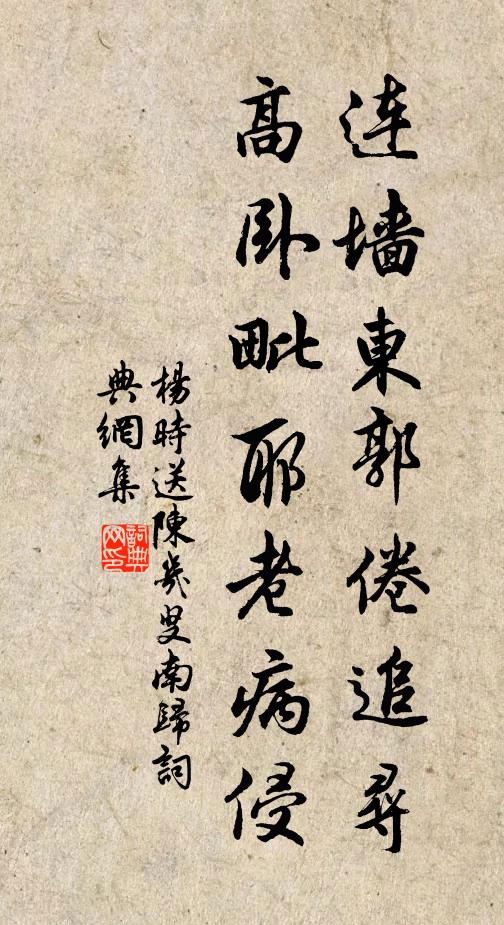 连墙東郭倦追尋
高卧毗耶老病侵
楊時送陳幾叟南歸詞
典網集
詞典网印